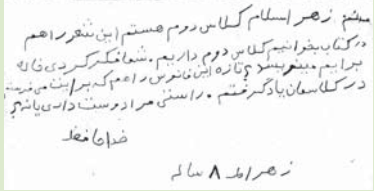 منم زهرا سلام کلاس دوم هستم این شعر را هم
در کتاب بخوانیم کلاس دوم داریم. شما فکر کردی خاله
برایم مینویسد، تازه این فانوس را هم که برایت می فرستم
در کلاسمان یاد گرفتم. راستی مرا دوست داری یا نه؟
خداحافظ
زهرا ۸ ساله